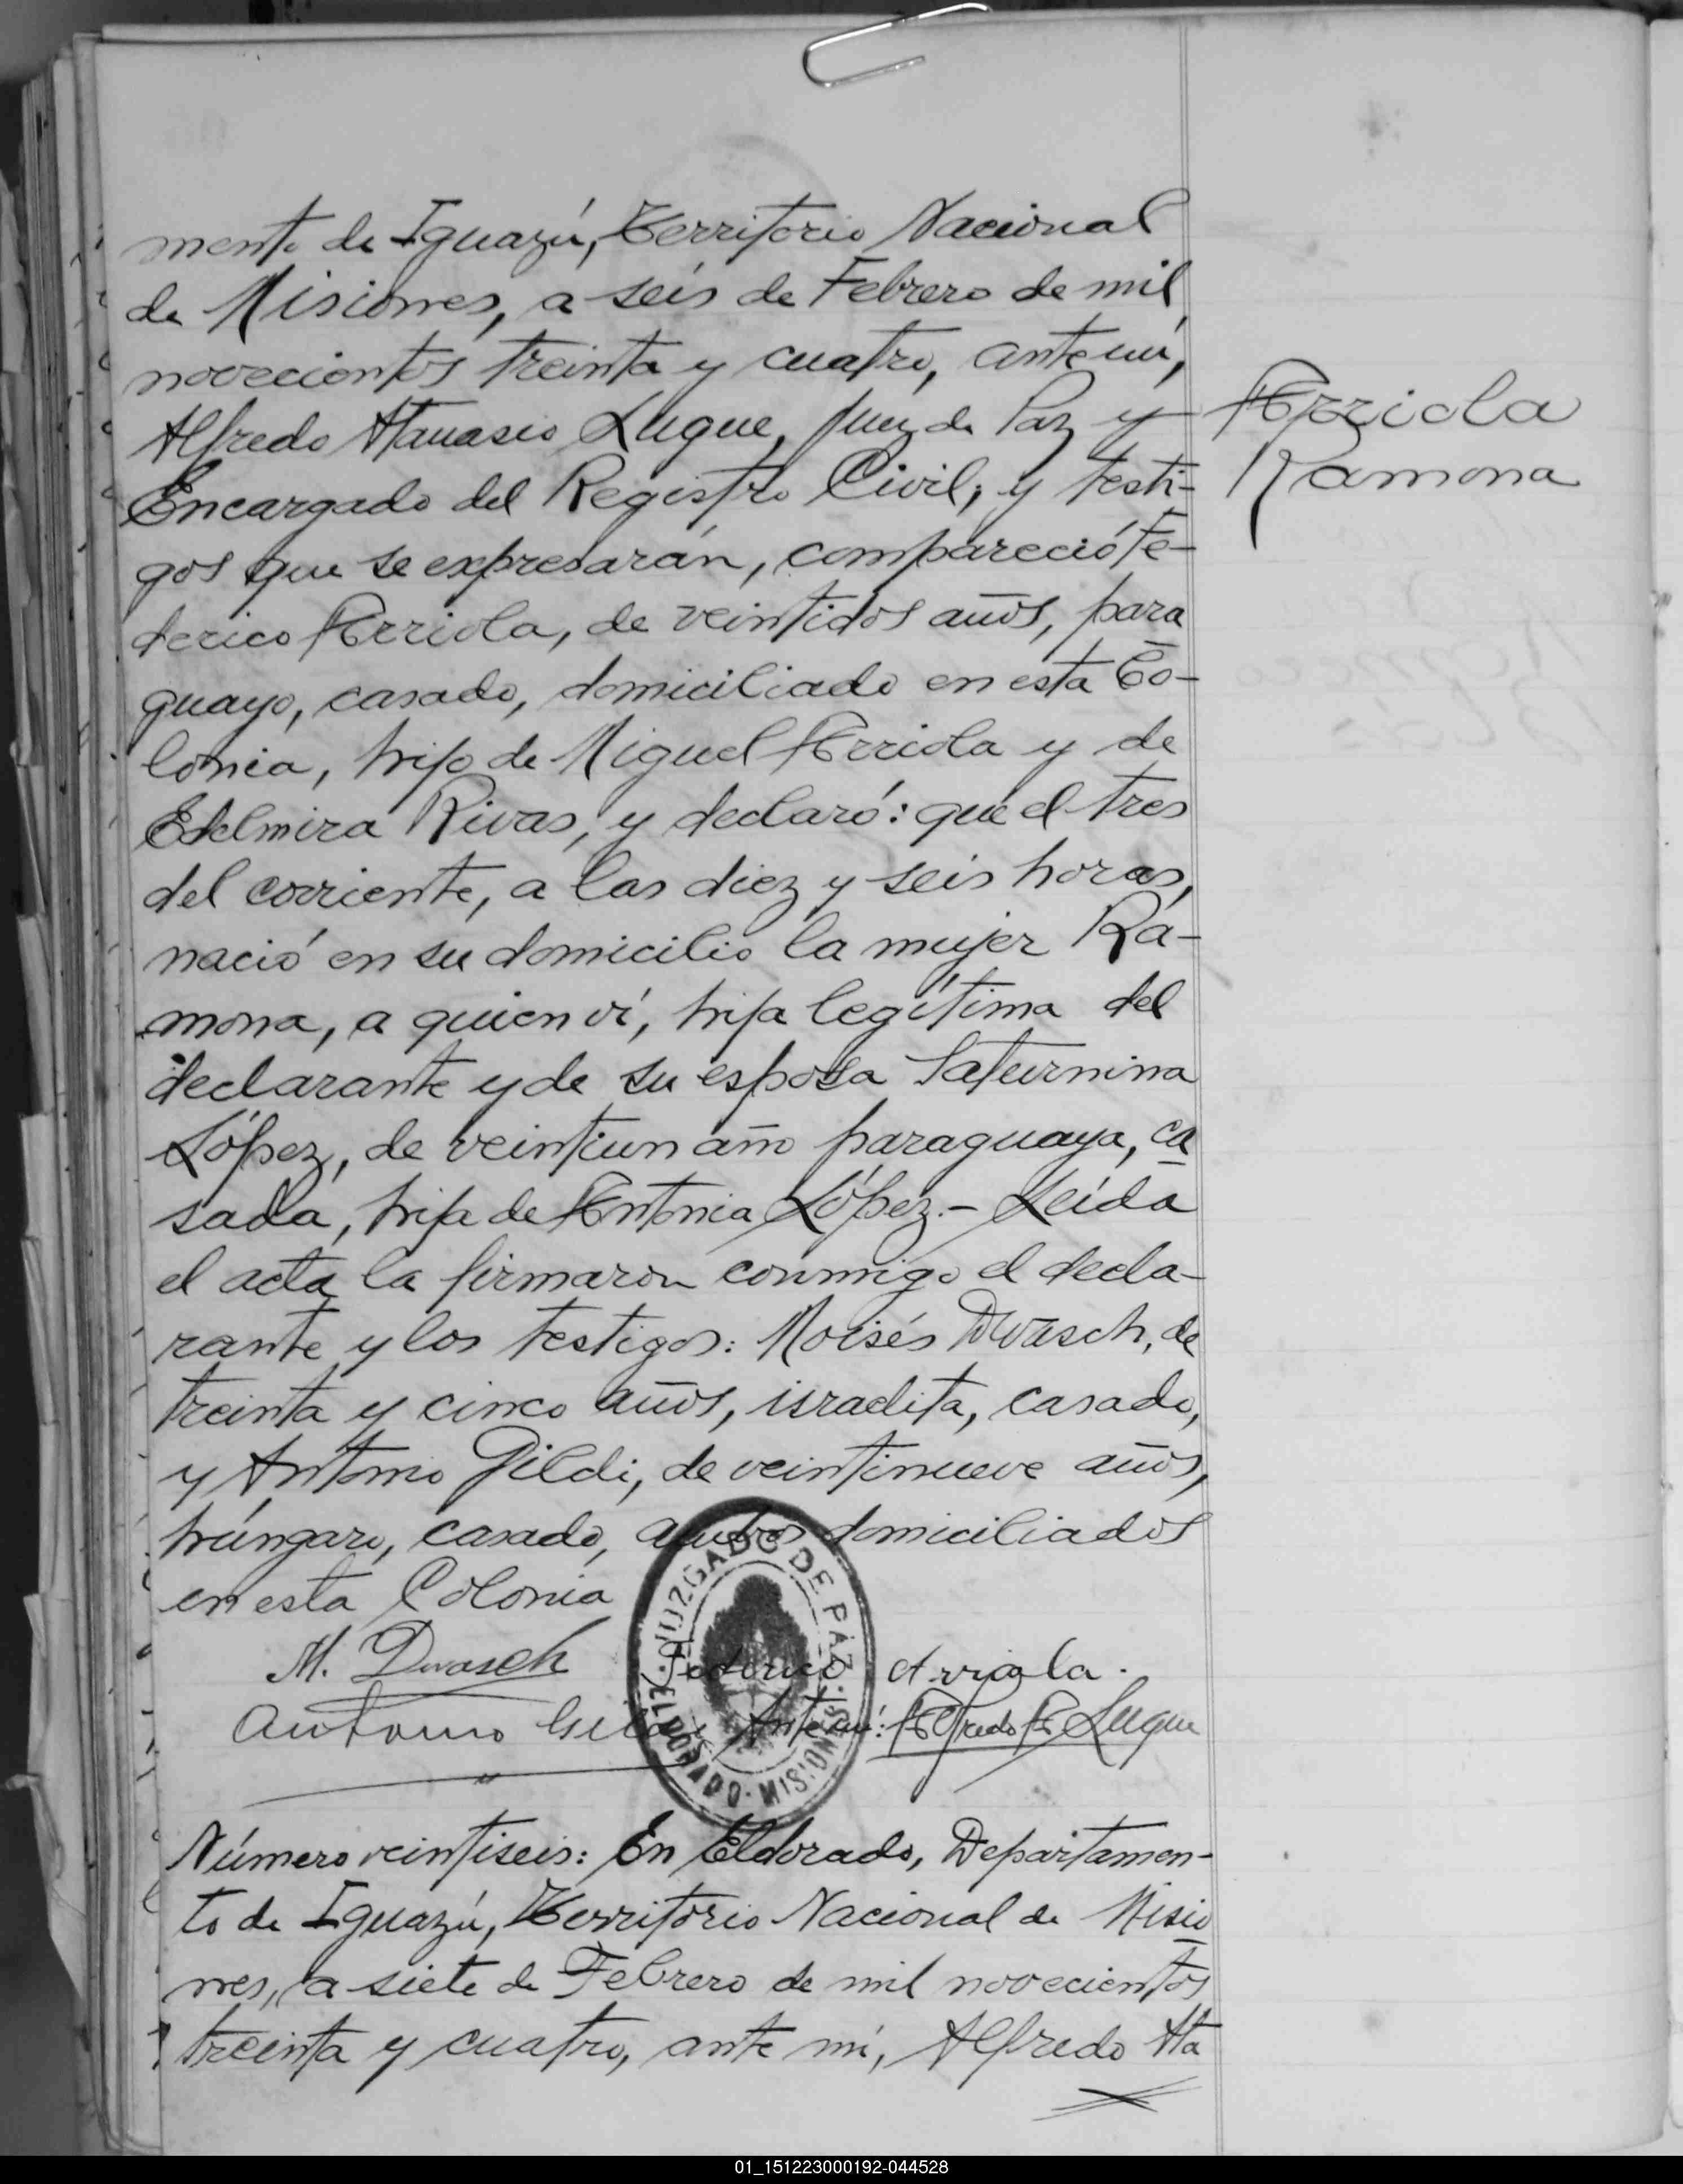 mento de Iguazú, Territorio Nacional
de Misiones, a seis de Febrero de mil
novecientos treinta y cuatro, ante mí,
Alfredo Atanasio Luque, Juez de Paz y
Encargado del Registro Civil, y testi-
gos que se expresarán, compareció Fe-
derico Arriola, de veintidos años, para
guayo, casado, domiciliado en esta Co-
lonia, hijo de Miguel Arriola y de
Edelmira Rivas, y declaró: que el tres
del corriente, a las diez y seis horas,
nació en su domicilio la mujer Ra-
mona, a quien ví, hija legítima del
declarante y de su esposa Saturnina
López, de veintiun año paraguaya, ca
sada, hija de Antonia López.- Leída
el acta la firmaron conmigo el decla-
rante y los testigos: Moisés Dwasch, de
treinta y cinco años, israelita, casado,
y Antonio Gildi, de veintinueve años,
húngaro, casado, ambos domiciliados
en esta Colonia
Arriola
Ramona
M. Dwasch Federico Arriola.
Antonio Ante mí: Alfredo A. Luque
JUZGADO DE PAZ · ELDORADO - MISIONES
Número veintiseis: En Eldorado, Departamen-
to de Iguazú, Territorio Nacional de Misio
nes, a siete de Febrero de mil novecientos
treinta y cuatro, ante mí, Alfredo Ata
01_151223000192-044528